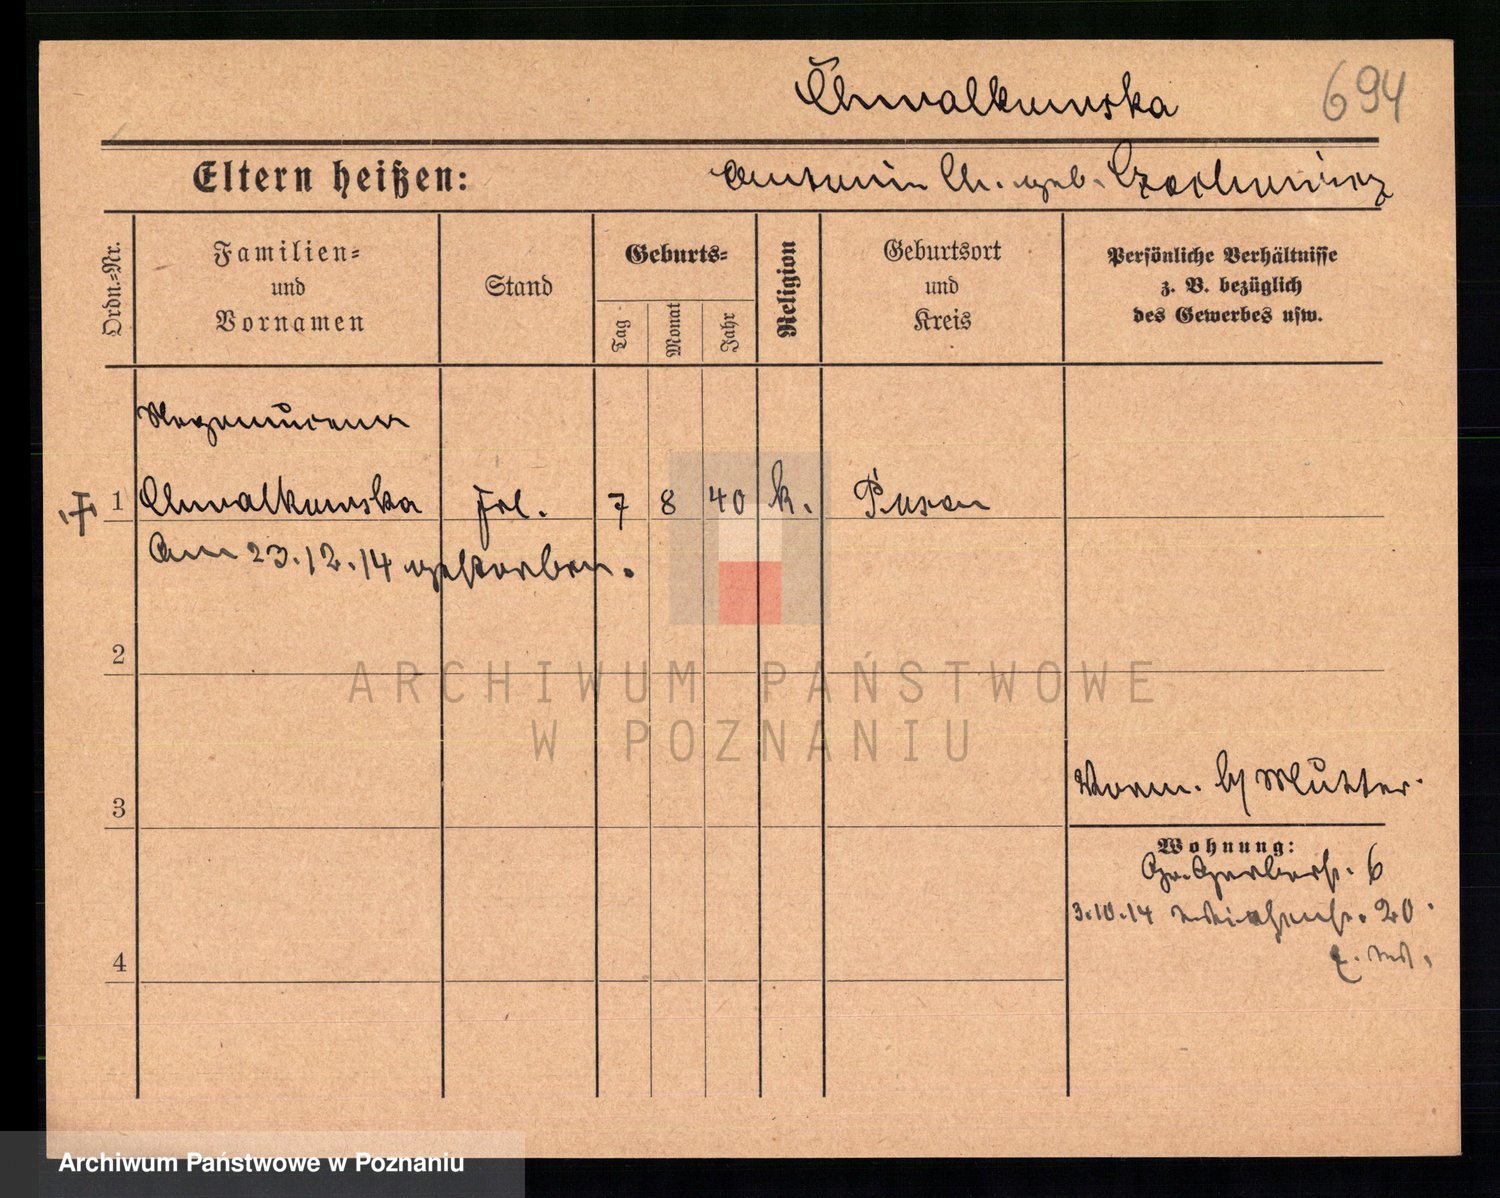 Chwalkowska 694
Eltern heißen: Antonin Ch. geb. Czochowicz
Ordn.=Nr.
Familien=
und
Vornamen
Stand
Geburts=
Tag
Monat
Jahr
Religion
Geburtsort
und
Kreis
Persönliche Verhältnisse
z. B. bezüglich
des Gewerbes usw.
1 Chwalkowska Frl. 7 8 40 k. Posen
Am 23.12.14 gestorben.
2
3
Vorm. b/ Mutter.
Wohnung:
Gr. Gerberstr. 6
3.10.14 20
4
ARCHIWUM PAŃSTWOWE
W POZNANIU
Archiwum Państwowe w Poznaniu